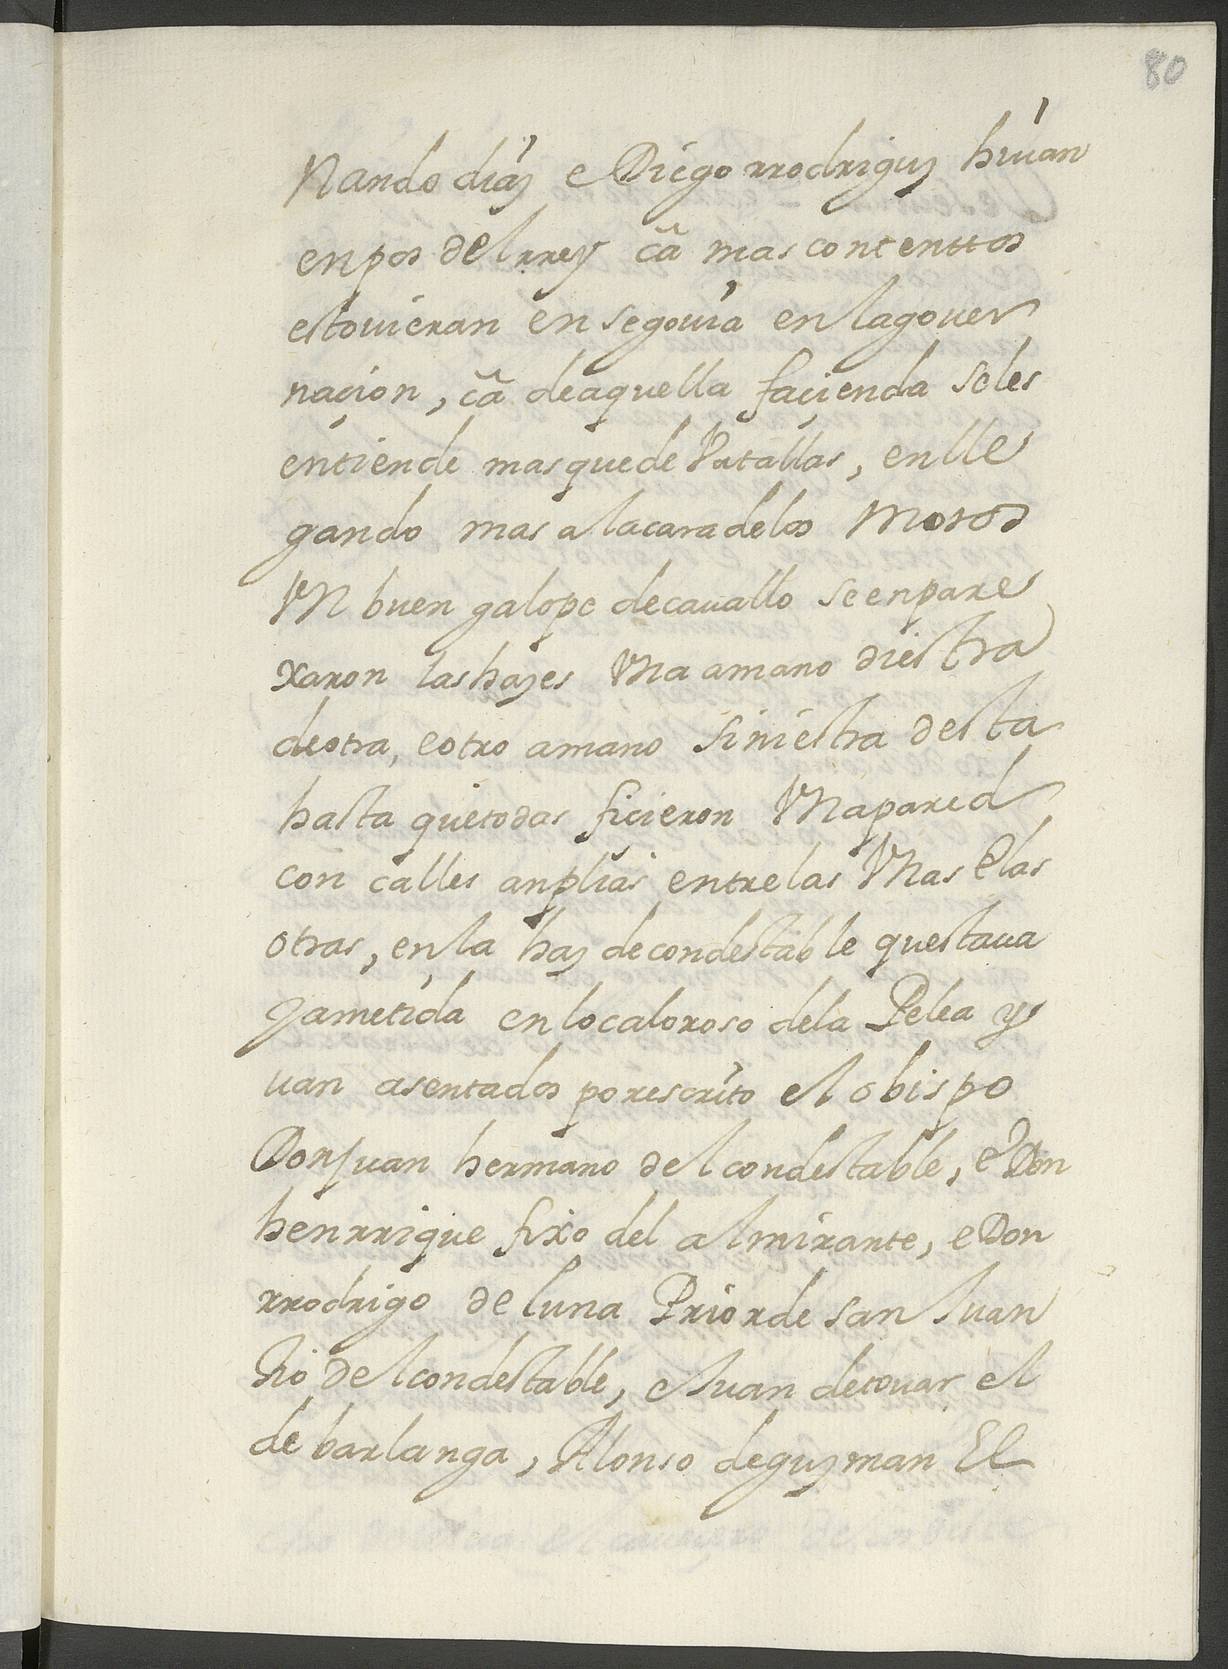 80
Nando diaz e Diego rrodriguz hiuan
enpos del rrey ca mas contenttos
estouieran en segouia en la gouer
naçion, ca de aquella façienda se les
entiende mas que de Vatallas, en lle
gando mas a la cara de los Moros
Vn buen galope de cauallo se enpare
xaron las hazes Vna a mano diestra
de otra, e otro a mano siniestra desta
hasta que todas ficieron Vna pared
con calles anplias entre las Vnas e las
otras, en la haz de condestable questaua
ya metida en lo caloroso de la Pelea y
uan asentados por escrito el obispo
Don Juan hermano del condestable, e Don
henrrique fixo del almirante, e Don
rrodrigo de luna Prior de san Juan
tio del condestable, e Juan de touar el
de barlanga, Alonso de guzman El